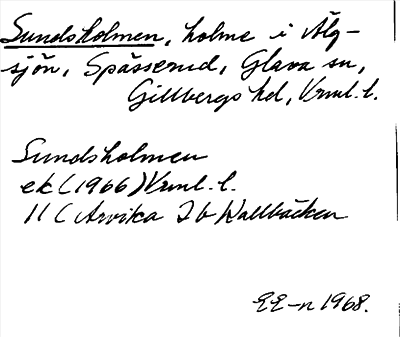 Sundsholmen, holme i Älg-
sjön, Spässerud, Glava sn,
Gillbergs hd, Vrml. l.
Sundsholmen
ek (1966) Vrml. l.
11 C Arvika 2 b Wallbäcken
EE-n 1968.